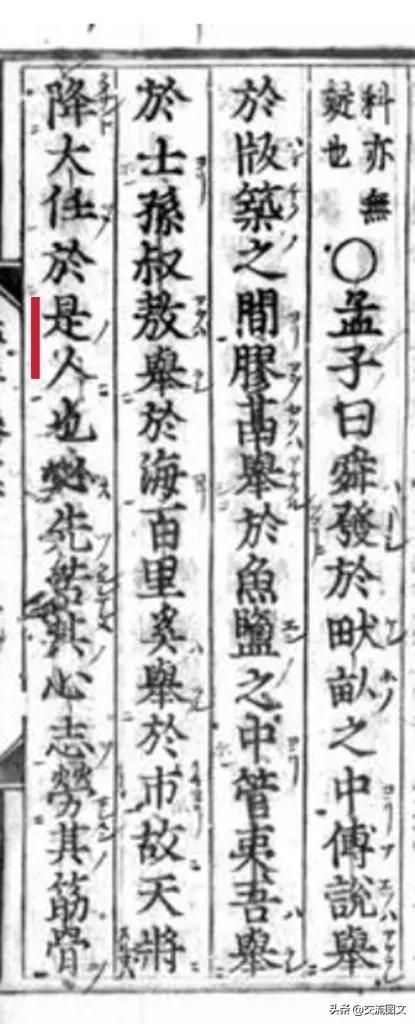 科亦無
也
○孟子曰舜發於畎畆之中傅說舉
於版築之間膠鬲舉於魚鹽之中管夷吾舉
於士孫叔敖舉於海百里奚舉於市故天將
降大任於是人也必先苦其心志勞其筋骨
头条 @交流图文